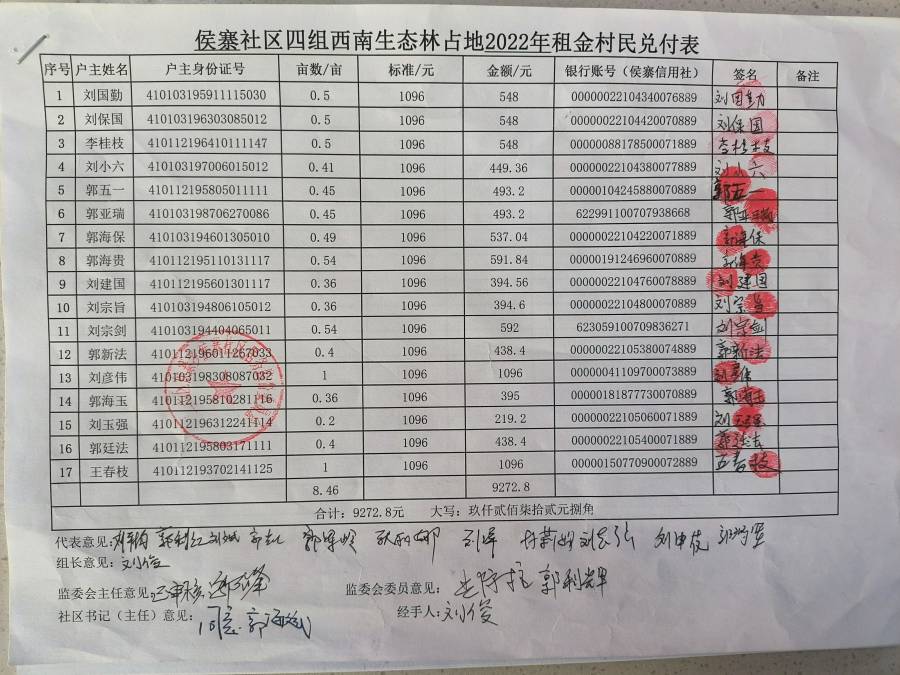 侯寨社区四组西南生态林占地2022年租金村民兑付表
序号 户主姓名 户主身份证号 亩数/亩 标准/元 金额/元 银行账号（侯寨信用社） 签名 备注
1 刘国勤 410103195911115030 0.5 1096 548 00000022104340076889 刘国勤
2 刘保国 410103196303085012 0.5 1096 548 00000022104420070889 刘保国
3 李桂枝 410112196410111147 0.5 1096 548 00000088178500071889 李桂枝
4 刘小六 410103197006015012 0.41 1096 449.36 00000022104380077889 刘小六
5 郭五一 410112195805011111 0.45 1096 493.2 00000104245880070889 郭五一
6 郭亚瑞 410103198706270086 0.45 1096 493.2 622991100707938668 郭亚瑞
7 郭海保 410103194601305010 0.49 1096 537.04 00000022104220071889 郭海保
8 郭海贵 410112195110131117 0.54 1096 591.84 00000191246960070889 郭海贵
9 刘建国 410112195601301117 0.36 1096 394.56 00000022104760078889 刘建国
10 刘宗旨 410103194806105012 0.36 1096 394.6 00000022104800070889 刘宗旨
11 刘宗剑 410103194404065011 0.54 1096 592 623059100709836271 刘宗剑
12 郭新法 410112196011267033 0.4 1096 438.4 00000022105380074889 郭新法
13 刘彦伟 410103198308087032 1 1096 1096 00000041109700073889 刘彦伟
14 郭海玉 410112195810281116 0.36 1096 395 00000181877730070889 郭海玉
15 刘玉强 410112196312241114 0.2 1096 219.2 00000022105060071889 刘玉强
16 郭廷法 410112195803171111 0.4 1096 438.4 00000022105400071889 郭廷法
17 王春枝 410112193702141125 1 1096 1096 00000150770900072889 王春枝
8.46 9272.8
合计：9272.8元 大写：玖仟贰佰柒拾贰元捌角
代表意见：
组长意见：刘小俊
监委会主任意见： 监委会委员意见： 郭利辉
社区书记（主任）意见：同意 经手人：刘俊